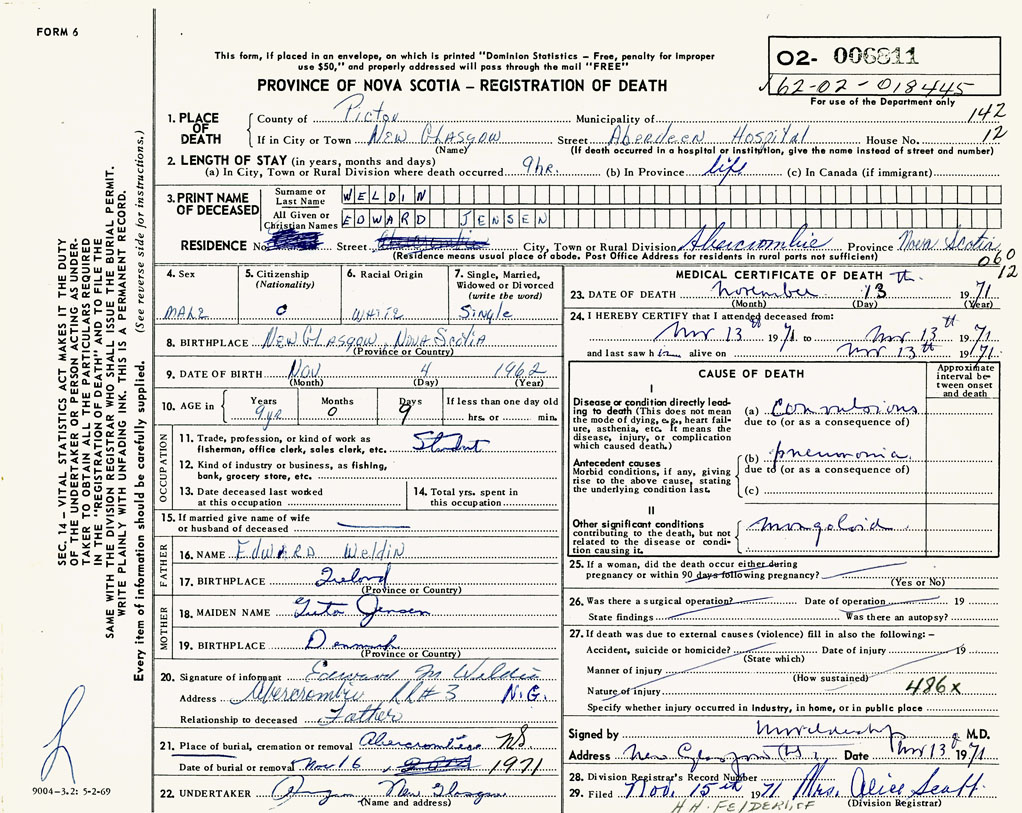 FORM 6
This form, if placed in an envelope, on which is printed "Dominion Statistics – Free, penalty for improper
use $50," and properly addressed will pass through the mail "FREE"
PROVINCE OF NOVA SCOTIA – REGISTRATION OF DEATH
02- 006811
62-02-018445
For use of the Department only
142
12
1. PLACE OF DEATH
County of Pictou Municipality of
If in City or Town New Glasgow Street Aberdeen Hospital House No.
(Name) (If death occurred in a hospital or institution, give the name instead of street and number)
2. LENGTH OF STAY (in years, months and days)
(a) In City, Town or Rural Division where death occurred 9hr. (b) In Province life (c) In Canada (if immigrant)
3. PRINT NAME OF DECEASED
Surname or Last Name WELDIN
All Given or Christian Names EDWARD JENSEN
RESIDENCE No. Street City, Town or Rural Division Abercrombie Province Nova Scotia
(Residence means usual place of abode. Post Office Address for residents in rural parts not sufficient)
060
12
4. Sex MALE
5. Citizenship (Nationality) 0
6. Racial Origin WHITE
7. Single, Married, Widowed or Divorced (write the word) Single
8. BIRTHPLACE New Glasgow, Nova Scotia
(Province or Country)
9. DATE OF BIRTH Nov 4 1962
(Month) (Day) (Year)
10. AGE in Years 9yr Months 0 Days 9 If less than one day old hrs. or min.
OCCUPATION
11. Trade, profession, or kind of work as
fisherman, office clerk, sales clerk, etc. Student
12. Kind of industry or business, as fishing,
bank, grocery store, etc.
13. Date deceased last worked
at this occupation
14. Total yrs. spent in
this occupation
15. If married give name of wife
or husband of deceased
FATHER
16. NAME Edward Weldin
17. BIRTHPLACE Ireland
(Province or Country)
MOTHER
18. MAIDEN NAME Jensen
19. BIRTHPLACE Denmark
(Province or Country)
20. Signature of informant Edward M Weldin
Address Abercrombie RR#3 N.G.
Relationship to deceased Father
21. Place of burial, cremation or removal Abercrombie NS.
Date of burial or removal Nov 16, 1971
22. UNDERTAKER New Glasgow
(Name and address)
MEDICAL CERTIFICATE OF DEATH
23. DATE OF DEATH November 13 th 1971
(Month) (Day) (Year)
24. I HEREBY CERTIFY that I attended deceased from:
Nov 13th 1971 to Nov 13th 1971
and last saw him alive on Nov 13th 1971
CAUSE OF DEATH
Approximate interval between onset and death
I
Disease or condition directly leading to death (This does not mean the mode of dying, e.g., heart failure, asthenia, etc. It means the disease, injury, or complication which caused death.)
(a) Convulsions
due to (or as a consequence of)
Antecedent causes
Morbid conditions, if any, giving rise to the above cause, stating the underlying condition last.
(b) pneumonia
due to (or as a consequence of)
(c)
II
Other significant conditions contributing to the death, but not related to the disease or condition causing it.
mongoloid
25. If a woman, did the death occur either during
pregnancy or within 90 days following pregnancy?
(Yes or No)
26. Was there a surgical operation? Date of operation 19
State findings Was there an autopsy?
27. If death was due to external causes (violence) fill in also the following: –
Accident, suicide or homicide? Date of injury 19
(State which)
Manner of injury
(How sustained)
Nature of injury 486x
Specify whether injury occurred in industry, in home, or in public place
Signed by M.D.
Address New Glasgow Date Nov 13 1971
28. Division Registrar's Record Number
29. Filed Nov. 15th 1971 Mrs. Alice Scott
(Division Registrar)
SEC. 14 – VITAL STATISTICS ACT MAKES IT THE DUTY
OF THE UNDERTAKER OR PERSON ACTING AS UNDER-
TAKER TO OBTAIN ALL THE PARTICULARS REQUIRED
IN THE "REGISTRATION OF DEATH" AND TO FILE THE
SAME WITH THE DIVISION REGISTRAR WHO SHALL ISSUE THE BURIAL PERMIT.
WRITE PLAINLY WITH UNFADING INK. THIS IS A PERMANENT RECORD.
Every item of information should be carefully supplied. (See reverse side for instructions.)
9004-3.2: 5-2-69